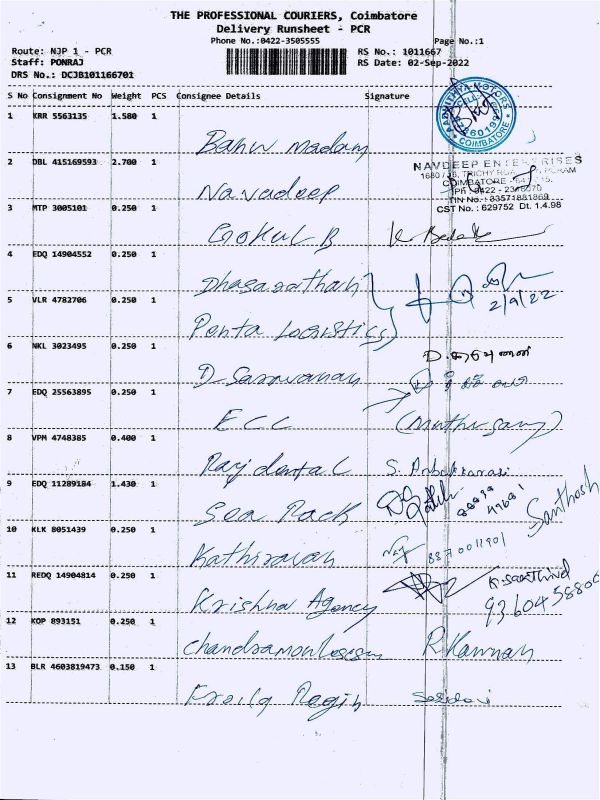 THE PROFESSIONAL COURIERS, Coimbatore
Delivery Runsheet - PCR
Phone No.:0422-3505555
Page No.:1
Route: NJP 1 - PCR
RS No.: 1011667
Staff: PONRAJ
RS Date: 02-Sep-2022
DRS No.: DCJB101166701
S No Consignment No Weight PCS Consignee Details Signature
1 KRR 5563135 1.580 1
Banu madam
AADHITHYA MOTORS
COIMBATORE
2 DBL 415169593 2.700 1
Navadeep
NAVDEEP ENTERPRISES
COIMBATORE
CST No.: 629752 Dt. 1.4.98
3 MTP 3005101 0.250 1
Gokul B
4 EDQ 14904552 0.250 1
Dhasarathan
2/9/22
5 VLR 4782706 0.250 1
Penta Logistics
6 NKL 3023495 0.250 1
D. Saravanan
7 EDQ 25563895 0.250 1
ECC (Muthusamy)
8 VPM 4748385 0.400 1
Raj dental
9 EDQ 11289184 1.430 1
Sea Pack
Santhosh
10 KLK 8051439 0.250 1
Kathiravan
11 REDQ 14904814 0.250 1
Krishna Agency
12 KOP 893151 0.250 1
R. Kannan
13 BLR 4603819473 0.150 1